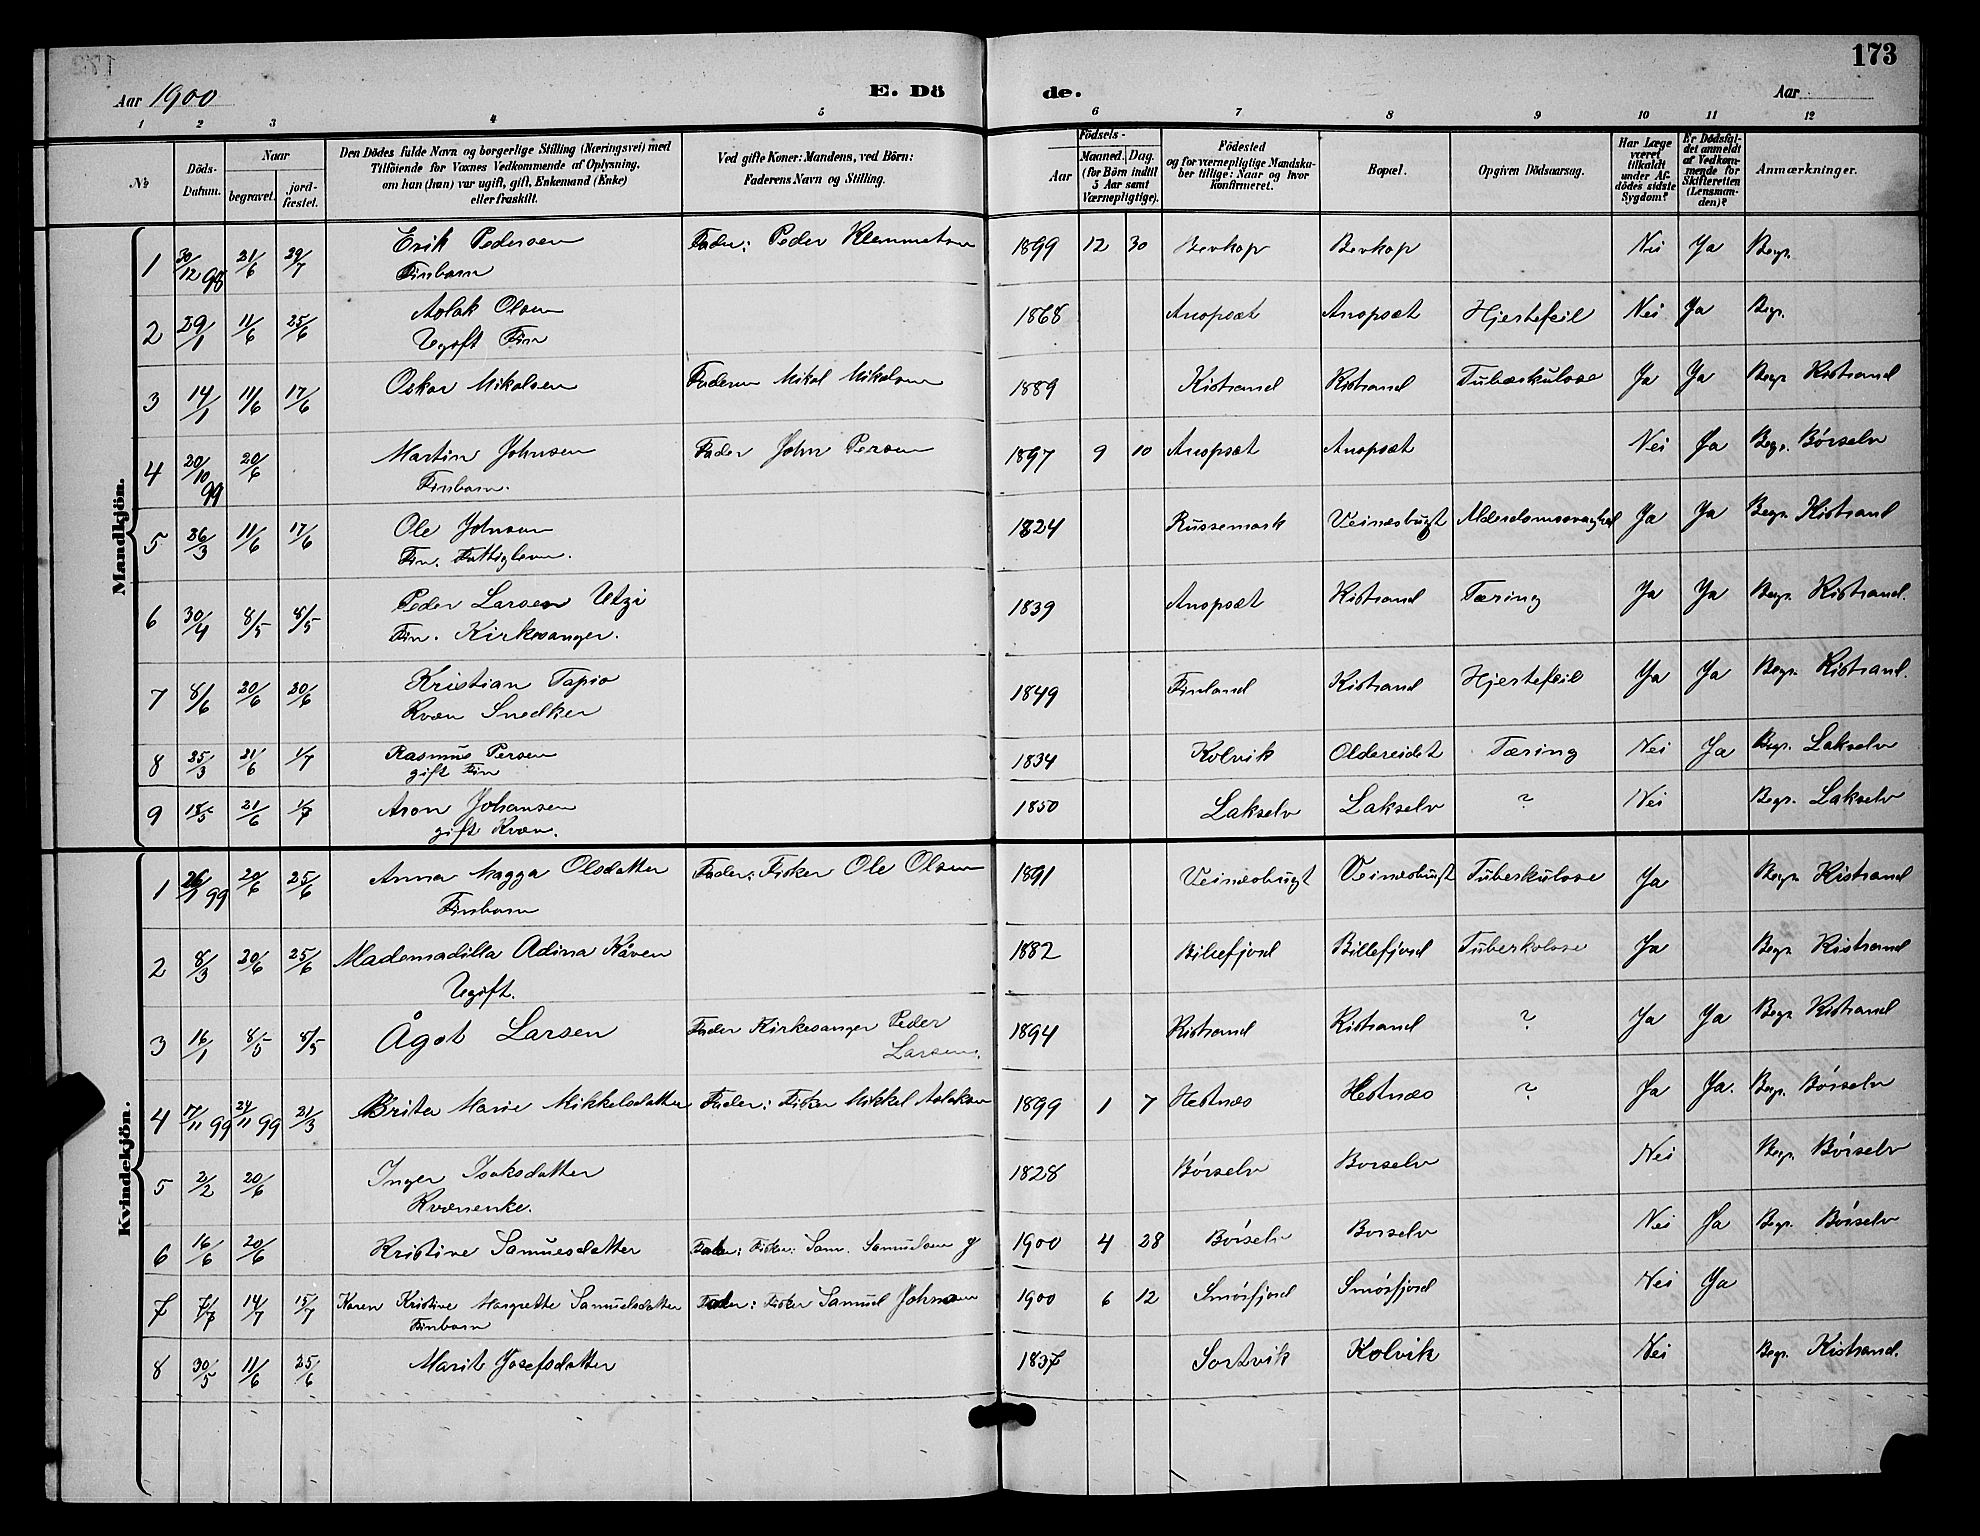 173
Aar 1900
E. Dö de.
Aar
1 2 3 4 5 6 7 8 9 10 11 12
№
Döds-Datum.
Naar
begravet.
jord-fæstet.
Den Dödes fulde Navn og borgerlige Stilling (Næringsvei) med
Tilföiende for Voxnes Vedkommende af Oplysning,
om han (hun) var ugift, gift, Enkemand (Enke)
eller fraskilt.
Ved gifte Koner: Mandens, ved Börn:
Faderens Navn og Stilling.
Födsels-
Aar
Maaned. Dag.
(for Börn indtil
5 Aar samt
Værnepligtige).
Födested
og for værnepligtige Mandska-
ber tillige: Naar og hvor
konfirmeret.
Bopæl.
Opgiven Dödsaarsag.
Har Læge
været
tilkaldt
under Af-
dödes sidste
Sygdom?
Er Dödsfal-
det anmeldt
af Vedkom-
mende for
Skifteretten
(Lensman-
den)?
Anmærkninger.
Mandkjön.
1 30/12 98 21/6 29/7 Erik Pedersen Fader: Peder Klemmetsen 1899 12 30 Bevkop Bevkop Nei Ja Begr.
Finbarn
2 29/1 11/6 25/6 Aslak Olsen 1868 Anopsæt Anopsæt Hjertefeil Nei Ja Begr.
Ugift Fin
3 14/1 11/6 17/6 Oskar Mikalsen Faderen Mikal Mikalsen 1889 Kistrand Kistrand Tubærkulose Ja Ja Begr. Kistrand
4 20/10 99 20/6 Martin Johnsen Fader John Persen 1897 9 10 Anopsæt Anopsæt Nei Ja Begr. Börselv
Finbarn.
5 26/3 11/6 17/6 Ole Johnsen 1824 Russemark Veinesbugt Alderdomssvaghed Ja Ja Begr. Kistrand
Fin. Fattiglem.
6 30/4 8/5 8/5 Peder Larsen Utzi 1839 Anopsæt Kistrand Tæring Ja Ja Begr. Kistrand.
Fin. Kirkesanger.
7 8/6 20/6 20/6 Kristian Tapio 1849 Finland Kistrand Hjertefeil Ja Ja Begr. Kistrand.
Kvæn Snedker
8 25/3 21/6 1/7 Rasmus Persen 1834 Kolvik Oldereidet Tæring Nei Ja Begr. Lakselv
gift Fin
9 18/5 21/6 1/7 Aron Johansen 1850 Lakselv Lakselv ? Nei Begr. Lakselv
gift Kvæn.
Kvindekjön.
1 26/9 99 20/6 25/6 Anna Magga Olsdatter Fader: Fisker Ole Olsen 1891 Veinesbugt Veinesbugt Tuberkulose Ja Begr. Kistrand
Finbarn
2 8/3 20/6 25/6 Mademadilla Adina Kåven 1882 Billefjord Billefjord Tuberkolose Ja Begr. Kistrand
Ugift.
3 16/1 8/5 8/5 Ågot Larsen Fader Kirkesanger Peder 1894 Kistrand Kistrand ? Ja Ja Begr. Kistrand
Larsen.
4 17/11 99 24/11 99 21/3 Brita Marie Mikkelsdatter Fader: Fisker Mikkel Aslaksen 1899 1 7 Hestnæs Hestnæs ? Ja Ja. Begr. Börselv
5 2/2 20/6 Inger Isaksdatter 1828 Börselv Borselv Nei Begr. Börselv
Kvænenke.
6 16/6 20/6 Kristine Samuesdatter Fader: Fisker: Sam. Samuelsen 1900 4 28 Börselv Borselv Nei Ja Begr. Börselv
7 7/7 14/7 15/7 Karen Kristine Margrethe Samuelsdatter Fader: Fisker Samuel Johnsen 1900 6 12 Smörfjord Smörfjord Nei Ja
Finbarn
8 30/5 11/6 25/6 Marit Josefsdatter 1837 Sortvik Kolvik Nei Begr. Kistrand.